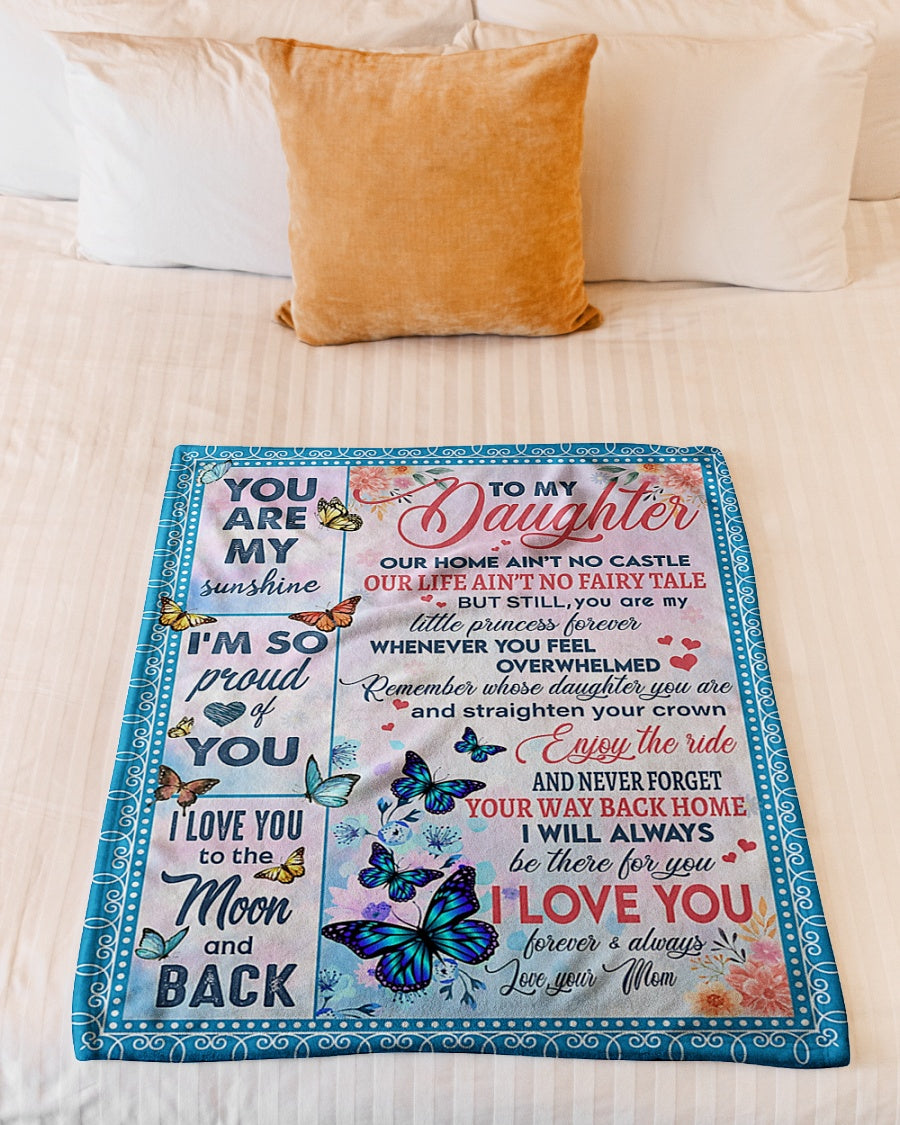 YOU
ARE
MY
sunshine
I'M SO
proud
of
YOU
I LOVE YOU
to the
Moon
and
BACK
TO MY
Daughter
OUR HOME AIN'T NO CASTLE
OUR LIFE AIN'T NO FAIRY TALE
BUT STILL, you are my
little princess forever
WHENEVER YOU FEEL
OVERWHELMED
Remember whose daughter you are
and straighten your crown
Enjoy the ride
AND NEVER FORGET
YOUR WAY BACK HOME
I WILL ALWAYS
be there for you
I LOVE YOU
forever & always
Love, your Mom